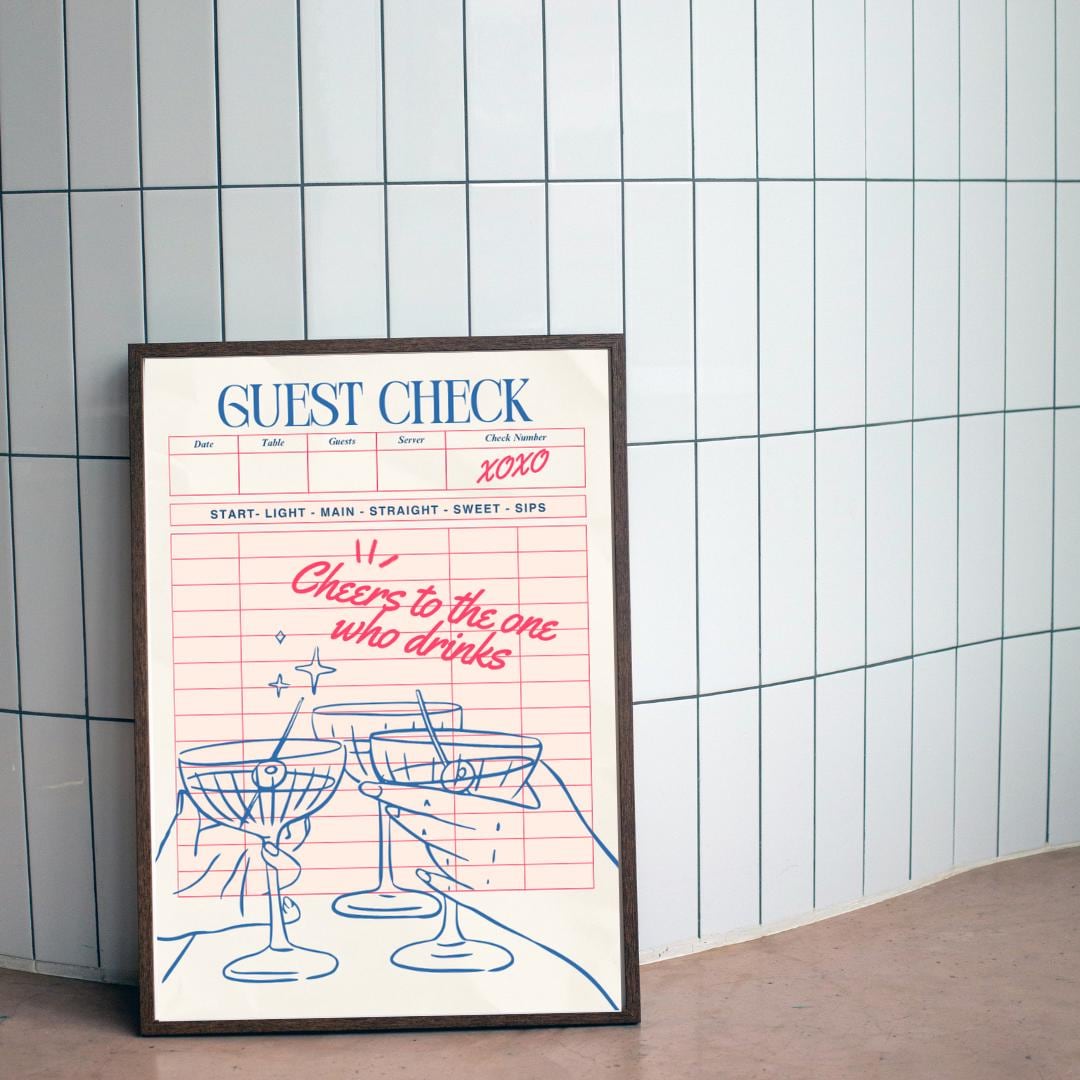 GUEST CHECK
Date Table Guests Server Check Number
XOXO
START- LIGHT - MAIN - STRAIGHT - SWEET - SIPS
Cheers to the one
who drinks